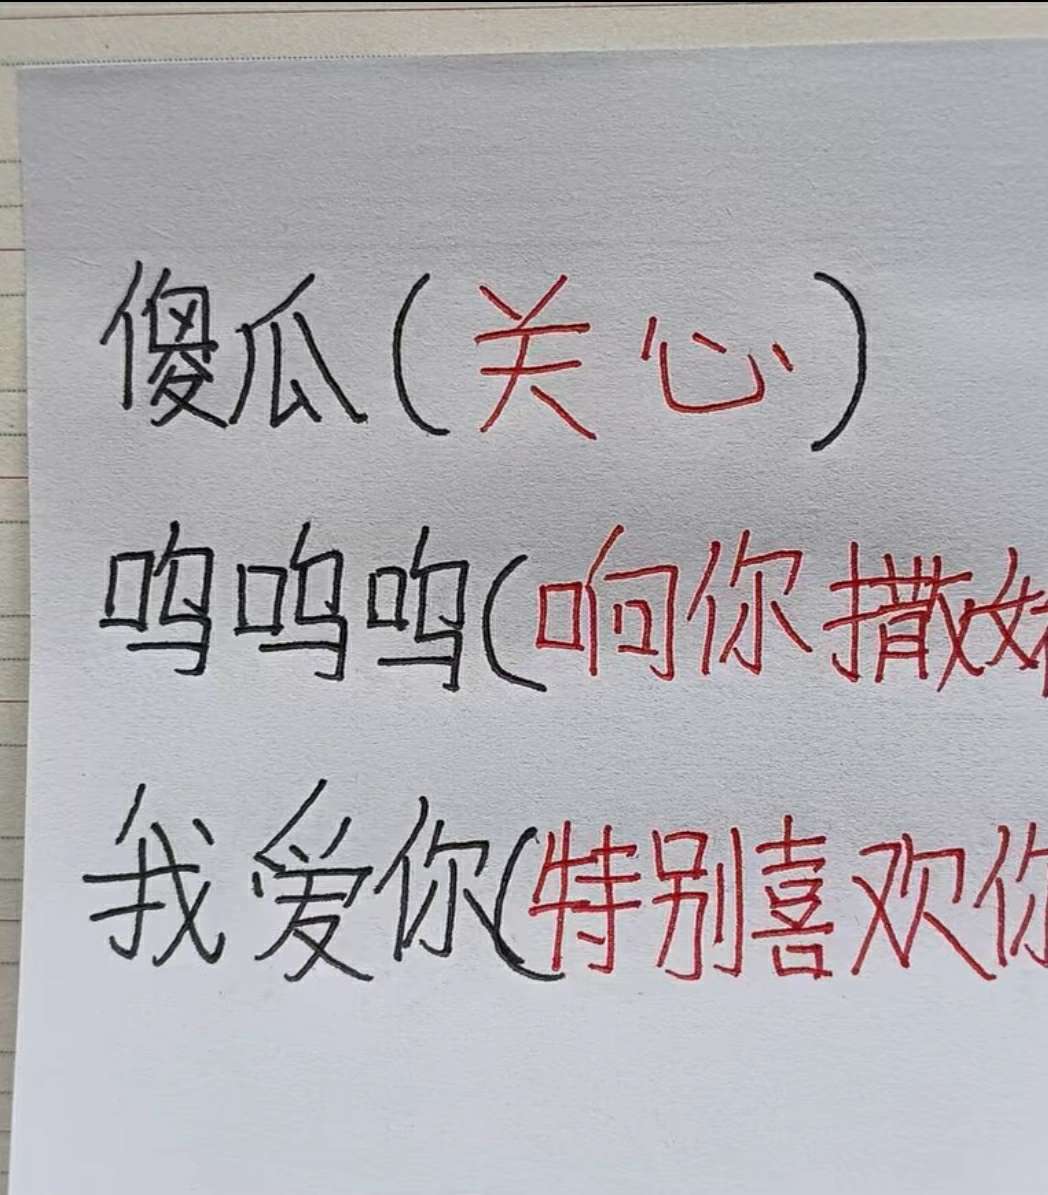 傻瓜(关心)
呜呜呜(响你撒
我爱你(特别喜欢你